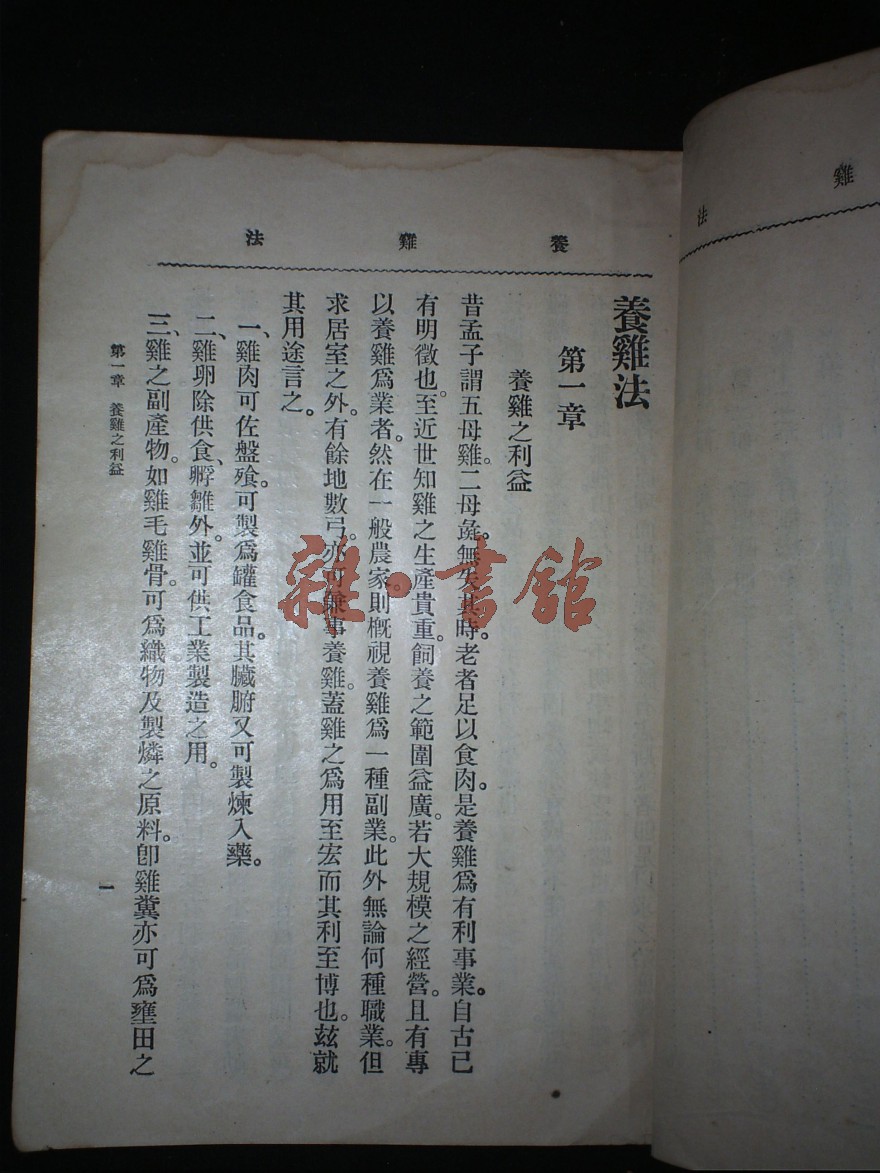 養雞法
養雞法
第一章
養雞之利益
昔孟子謂五母雞。二母彘。無失其時。老者足以食肉。是養雞爲有利事業。自古已
有明徵也。至近世知雞之生產貴重。飼養之範圍益廣。若大規模之經營。且有專
以養雞爲業者。然在一般農家。則概視養雞爲一種副業。此外無論何種職業。但
求居室之外。有餘地數弓。亦可兼事養雞。蓋雞之爲用至宏。而其利至博也。玆就
其用途言之。
一、雞肉可佐盤飱。可製爲罐食品。其臟腑又可製煉入藥。
二、雞卵除供食、孵雛外。並可供工業製造之用。
三、雞之副產物。如雞毛雞骨。可爲織物及製燐之原料。卽雞糞亦可爲壅田之
第一章 養雞之利益
一
雞
法
雜·書館